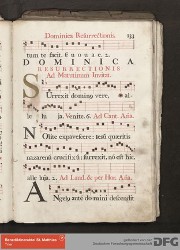 Dominica Resurrectionis. 133
tum te facit. E u o u a e. 2.
DOMINICA
RESURRECTIONIS
Ad Matutinum Invitat.
Surrexit domino vere, al-
le- ia. Venite. 6. Ad Cant. Aña.
Nolite expavescere: iesū queritis
nazarenū crucifixū: surrexit, nō est hic.
alleluja. 2. Ad Laud. & per Hor. Aña.
Angelꝰ autē domini descendit
DFG